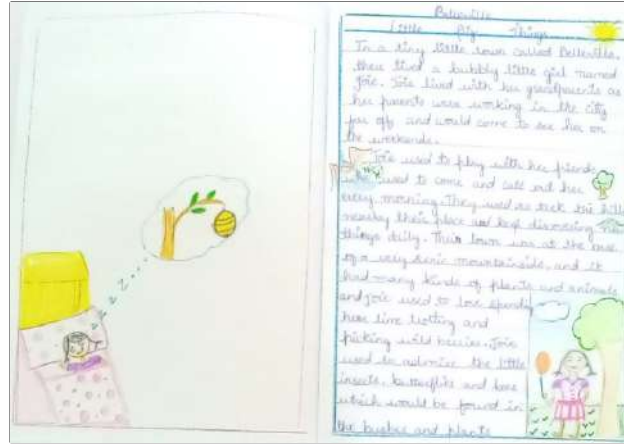 Belleville
Little Big Things
In a tiny little town called Belleville,
there lived a bubbly little girl named
Joie. Joie lived with her grandparents as
her parents were working in the city
far off and would come to see her on
the weekends.
Joie used to play with her friends
who used to come and call out her
every morning. They used to trek the hills
nearby their place and kept discovering
things daily. Their town was at the base
of a very scenic mountainside, and it
had many kinds of plants and animals
and Joie used to love spending
her time trotting and
picking wild berries. Joie
used to admire the little
insects, butterflies and bees
which would be found in
the bushes and plants